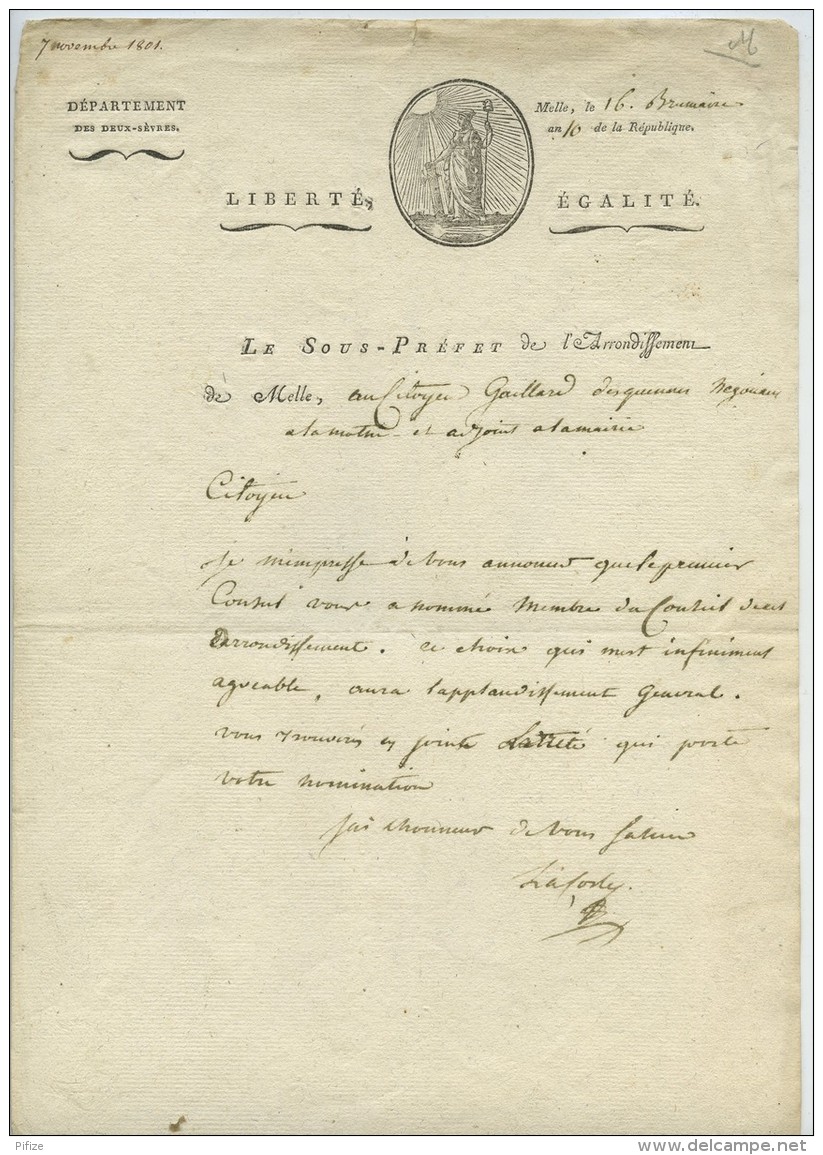 7 novembre 1801.
DÉPARTEMENT
DES DEUX-SÈVRES.
Melle, le 16. Brumaire
an 10 de la République.
LIBERTÉ, ÉGALITÉ.
LE SOUS-PRÉFET de l'Arrondissement
de Melle, au Citoyen Gaillard negociant
a la mothe et adjoint a la mairie
Citoyen
Je m'empresse de vous annoncer que le premier
Consul vous a nommé Membre du Conseil de cet
arrondissement. ce choix qui m'est infiniment
agreable, aura l'applaudissement General.
vous trouverés cy jointe L'arrêté qui porte
votre nomination
J'ai l'honneur de vous saluer
Pifize
www.delcampe.net